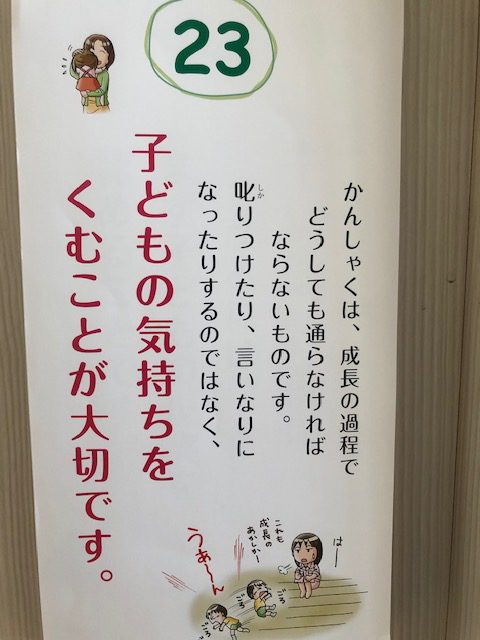 23
かんしゃくは、成長の過程で
どうしても通らなければ
ならないものです。
叱りつけたり、言いなりに
しか
なったりするのではなく、
子どもの気持ちを
くむことが大切です。
はー
これも
成長の
あかしかー
うぁ〜ん
ごろ
ごろ
ごろ
ごろ